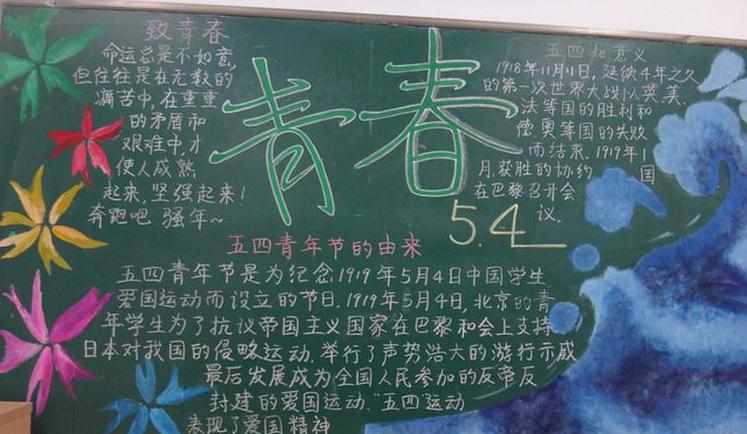 致青春
命运总是不如意,
但往往是在无数的
痛苦中,在重重
的矛盾和
艰难中,才
使人成熟
起来,坚强起来!
奔跑吧 强年~
青春
5.4
五四 意义
1918年11月11日,延续4年之久
的第一次世界大战以英、美、
法等国的胜利和
德、奥等国的失败
而结束.1919年1
月,获胜的协约 国
在巴黎召开会
议.
五四青年节的由来
五四青年节是为纪念1919年5月4日中国学生
爱国运动而设立的节日.1919年5月4日,北京的青
年学生为了抗议帝国主义国家在巴黎和会上支持
日本对我国的侵略运动,举行了声势浩大的游行示威
最后发展成为全国人民参加的反帝反
封建的爱国运动."五四"运动
表现了爱国精神